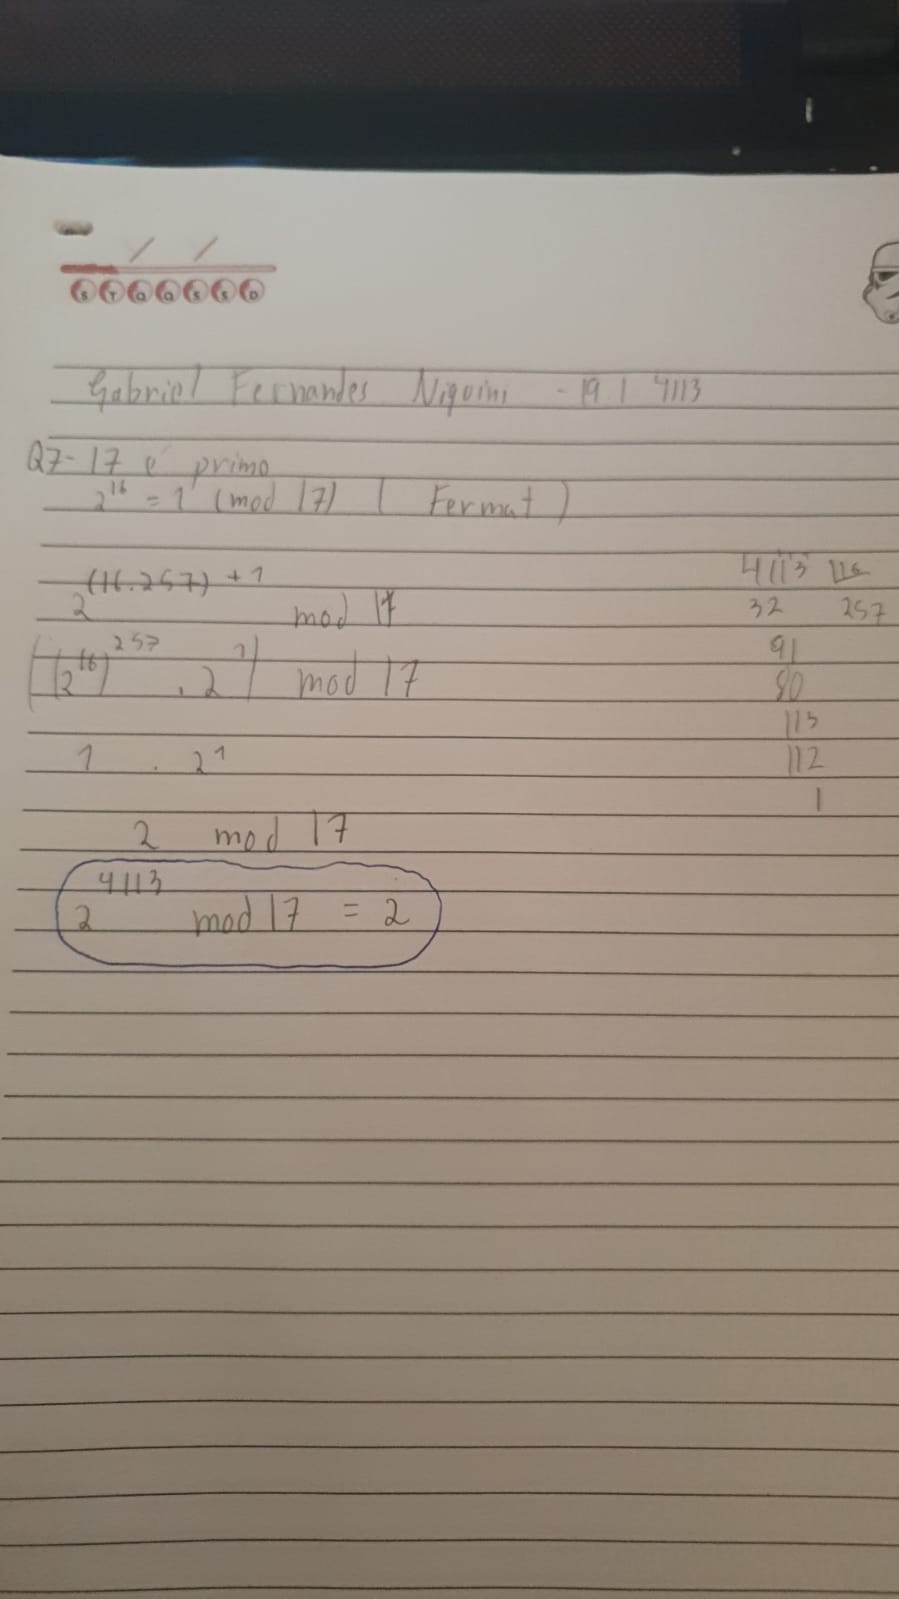 S T Q Q S S D
Gabriel Fernandes Niquini - 19 1 4113
Q7- 17 é primo
2^16 = 1 (mod 17) ( Fermat )
2^(16.257) + 1 mod 17
((2^16)^257 . 2^1) mod 17
1 . 2^1
2 mod 17
2^4113 mod 17 = 2
4113 16
32 257
91
80
113
112
1